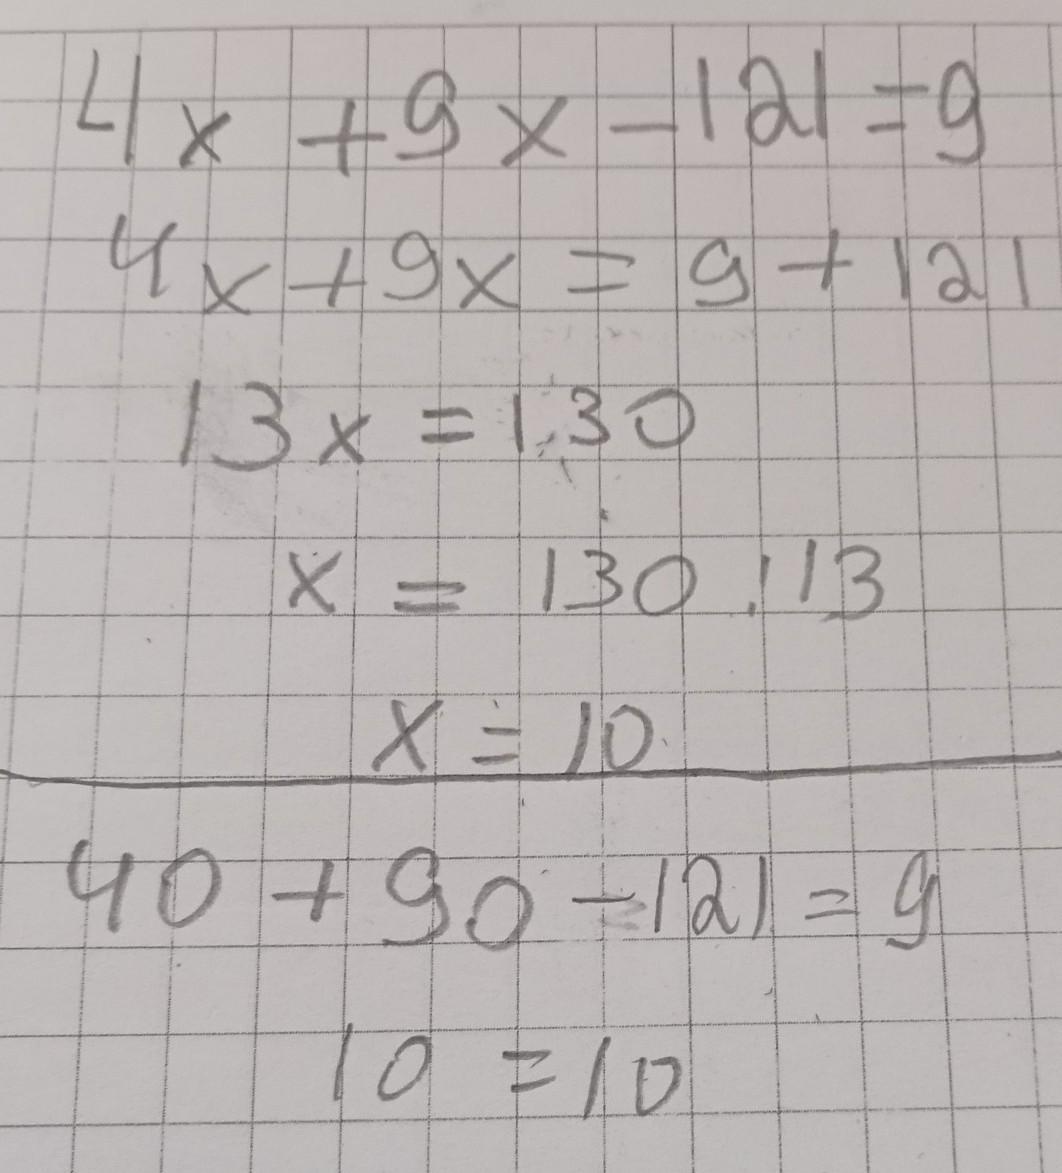 4x + 9x - 121 = 9
4x + 9x = 9 + 121
13x = 130
x = 130 : 13
x = 10
40 + 90 - 121 = 9
10 = 10